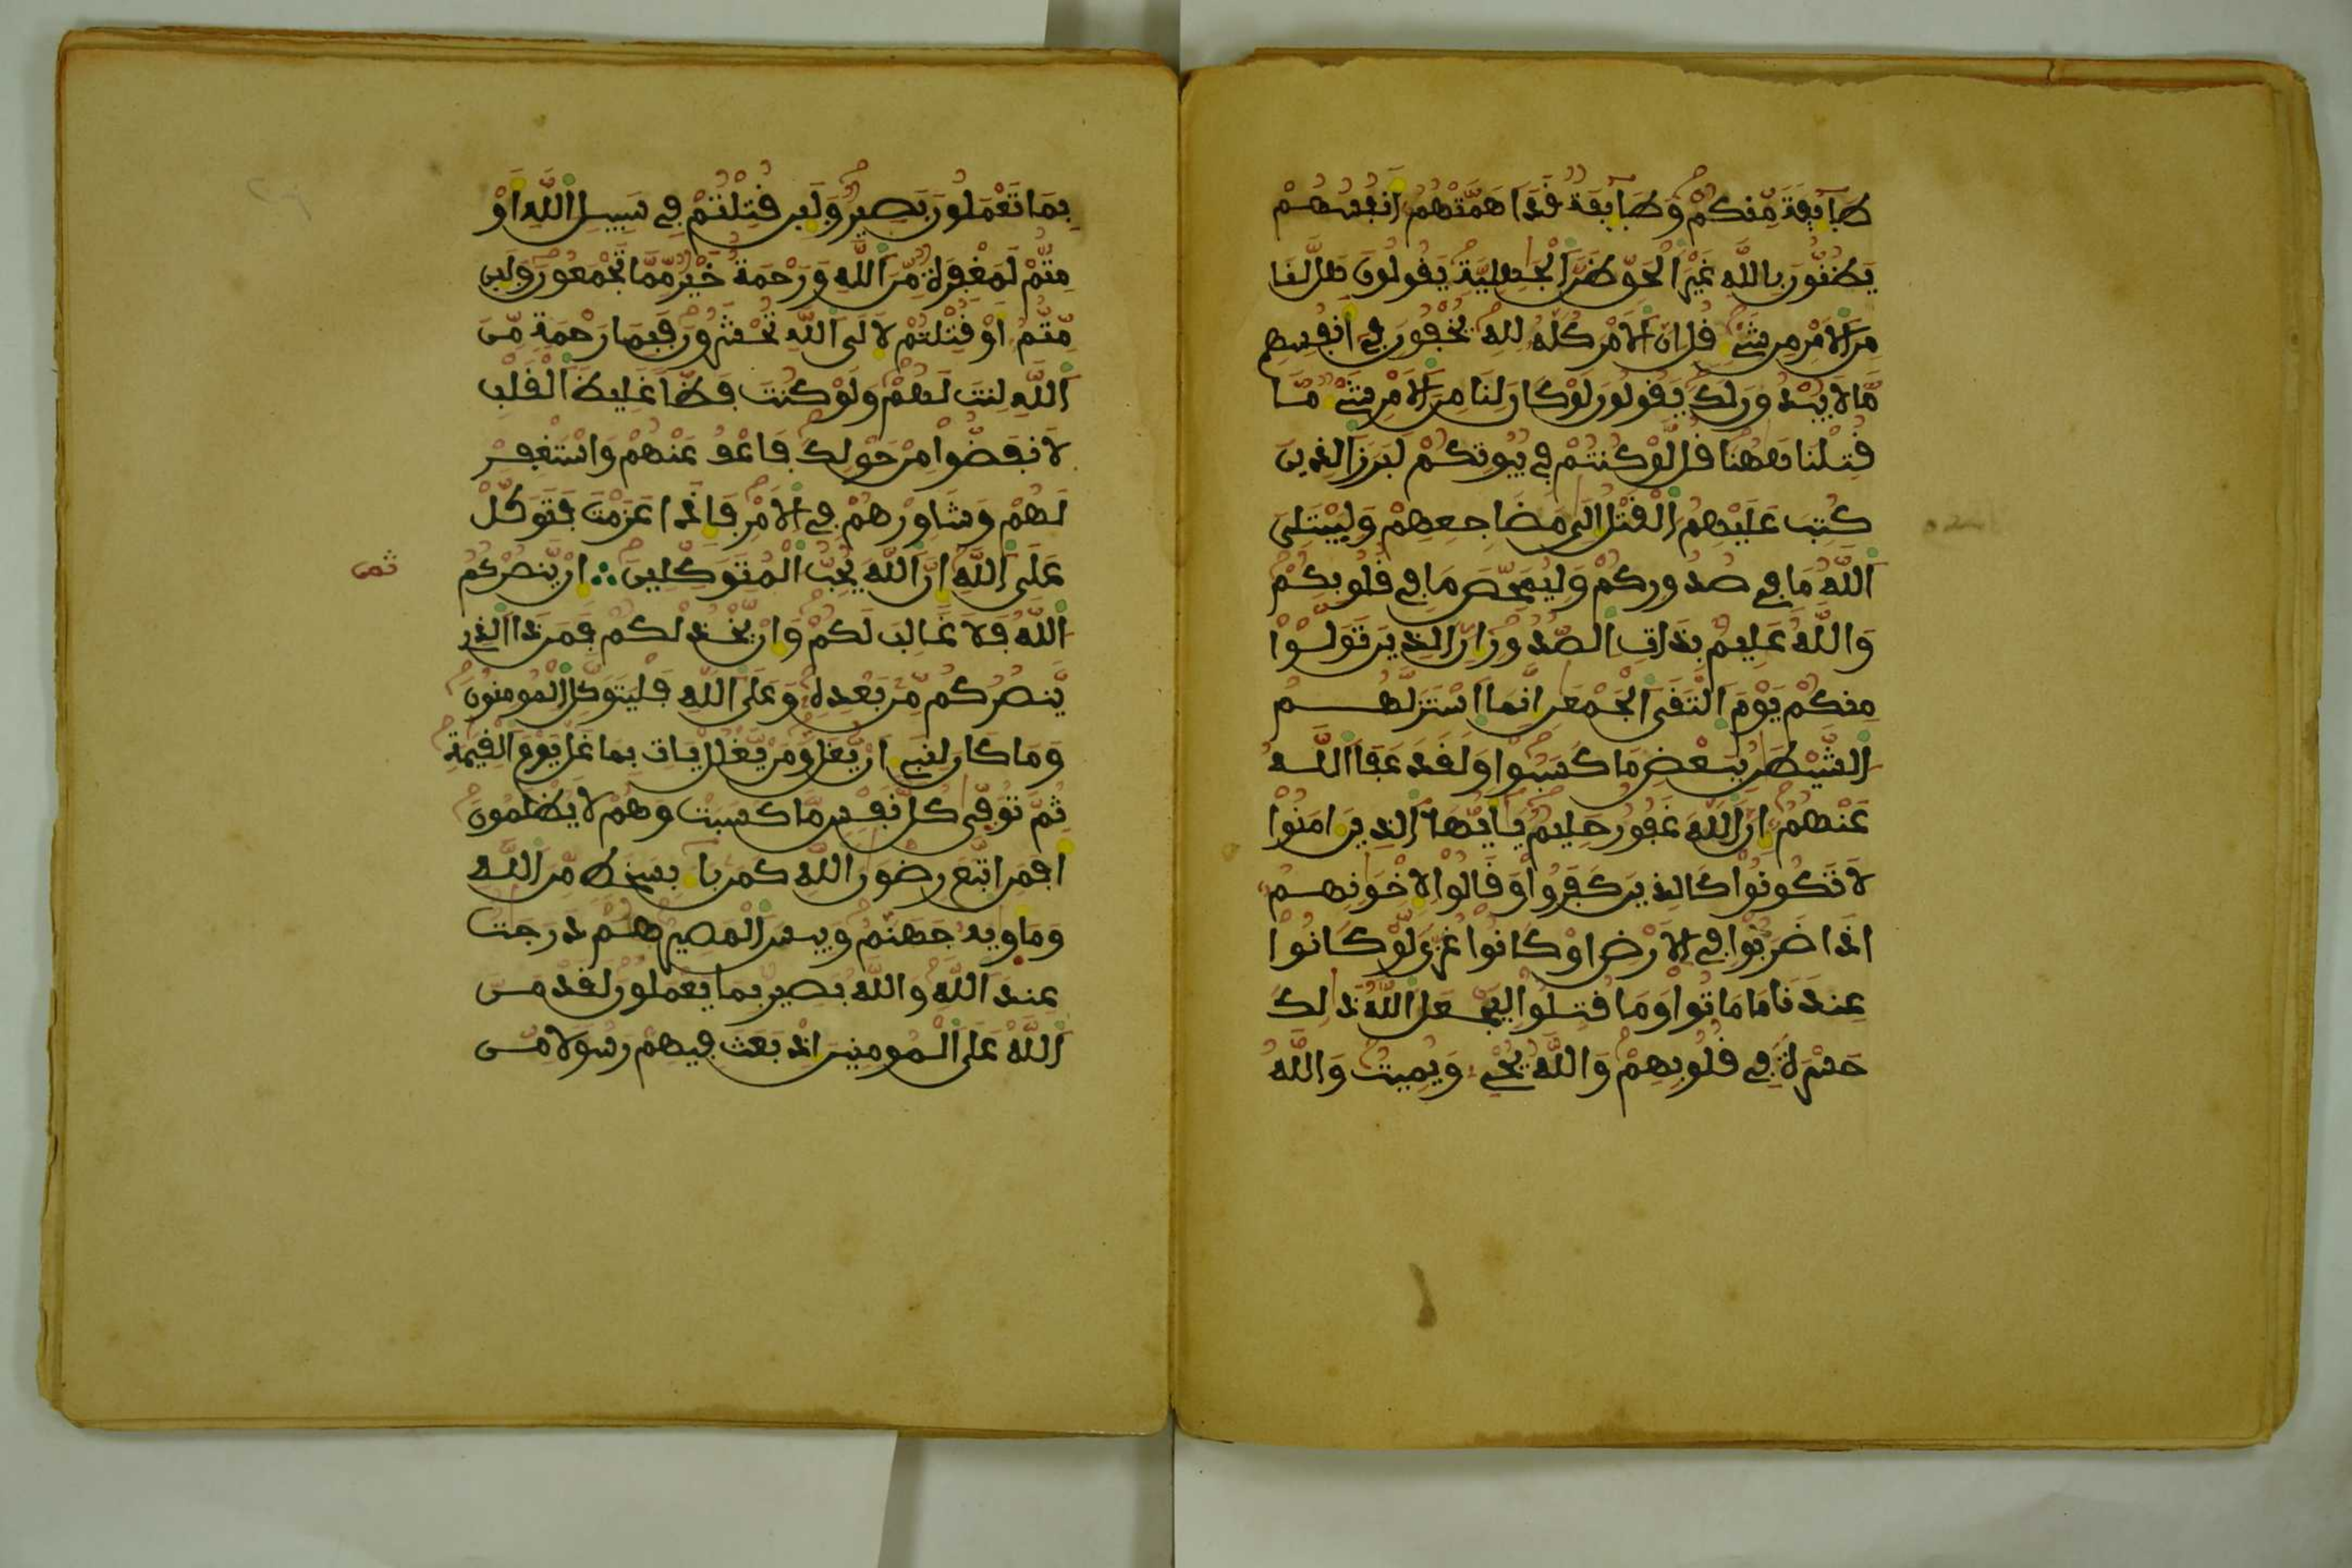 طَآئِفَةً مِّنكُمْ وَطَآئِفَةٌ قَدَ اَهَمَّتْهُمُ أَنفُسُهُمْ
يَظُنُّونَ بِاللَّهِ غَيْرَ الْحَقِّ ظَنَّ الْجَٰهِلِيَّةِ يَقُولُونَ هَل لَّنَا
مِنَ الَامْرِ مِن شَيْءٍ قُلِ انَّ الَامْرَ كُلَّهُ لِلهِ يُخْفُونَ فِي أَنفُسِهِم
مَّا لَا يُبْدُونَ لَكَ يَقُولُونَ لَوْ كَانَ لَنَا مِنَ الَامْرِ شَيْءٌ مَّا
قُتِلْنَا هَٰهُنَا قُل لَّوْ كُنتُمْ فِي بُيُوتِكُمْ لَبَرَزَ الذِينَ
كُتِبَ عَلَيْهِمُ الْقَتْلُ إِلَىٰ مَضَاجِعِهِمْ وَلِيَبْتَلِيَ
اللَّهُ مَا فِي صُدُورِكُمْ وَلِيُمَحِّصَ مَا فِي قُلُوبِكُمْ
وَاللَّهُ عَلِيمٌ بِذَاتِ الصُّدُورِ إِنَّ الذِينَ تَوَلَّوْا
مِنكُمْ يَوْمَ الْتَقَى الْجَمْعَٰنِ إِنَّمَا اسْتَزَلَّهُمُ
الشَّيْطَٰنُ بِبَعْضِ مَا كَسَبُوا وَلَقَدْ عَفَا اللَّهُ
عَنْهُمُ إِنَّ اللَّهَ غَفُورٌ حَلِيمٌ يَٰأَيُّهَا الذِينَ ءَامَنُوا
لَا تَكُونُوا كَالذِينَ كَفَرُوا وَقَالُوا لِإِخْوَٰنِهِمُ
إِذَا ضَرَبُوا فِي الَارْضِ أَوْ كَانُوا غُزًّى لَّوْ كَانُوا
عِندَنَا مَا مَاتُوا وَمَا قُتِلُوا لِيَجْعَلَ اللَّهُ ذَٰلِكَ
حَسْرَةً فِي قُلُوبِهِمْ وَاللَّهُ يُحْيِي وَيُمِيتُ وَاللَّهُ
بِمَا تَعْمَلُونَ بَصِيرٌ وَلَئِن قُتِلْتُمْ فِي سَبِيلِ اللَّهِ أَوْ
مِتُّمْ لَمَغْفِرَةٌ مِّنَ اللَّهِ وَرَحْمَةٌ خَيْرٌ مِّمَّا تَجْمَعُونَ وَلَئِن
مِّتُّمُ أَوْ قُتِلْتُمْ لَإِلَى اللَّهِ تُحْشَرُونَ فَبِمَا رَحْمَةٍ مِّنَ
اللَّهِ لِنتَ لَهُمْ وَلَوْ كُنتَ فَظًّا غَلِيظَ الْقَلْبِ
لَانفَضُّوا مِنْ حَوْلِكَ فَاعْفُ عَنْهُمْ وَاسْتَغْفِرْ
لَهُمْ وَشَاوِرْهُمْ فِي الَامْرِ فَإِذَا عَزَمْتَ فَتَوَكَّلْ
عَلَى اللَّهِ إِنَّ اللَّهَ يُحِبُّ الْمُتَوَكِّلِينَ ∴ إِنْ يَّنصُرْكُمُ
ثمن
اللَّهُ فَلَا غَالِبَ لَكُمْ وَإِنْ يَّخْذُلْكُمْ فَمَن ذَا الذِي
يَنصُرُكُم مِّن بَعْدِهِ وَعَلَى اللَّهِ فَلْيَتَوَكَّلِ الْمُومِنُونَ
وَمَا كَانَ لِنَبِيءٍ أَنْ يُّغَلَّ وَمَنْ يَّغْلُلْ يَاتِ بِمَا غَلَّ يَوْمَ الْقِيَٰمَةِ
ثُمَّ تُوَفَّىٰ كُلُّ نَفْسٍ مَّا كَسَبَتْ وَهُمْ لَا يُظْلَمُونَ
أَفَمَنِ اتَّبَعَ رِضْوَٰنَ اللَّهِ كَمَن بَاءَ بِسَخَطٍ مِّنَ اللَّهِ
وَمَأْوِيهُ جَهَنَّمُ وَبِيسَ الْمَصِيرُ هُمْ دَرَجَٰتٌ
عِندَ اللَّهِ وَاللَّهُ بَصِيرٌ بِمَا يَعْمَلُونَ لَقَدْ مَنَّ
اللَّهُ عَلَى الْمُومِنِينَ إِذْ بَعَثَ فِيهِمْ رَسُولًا مِّنَ